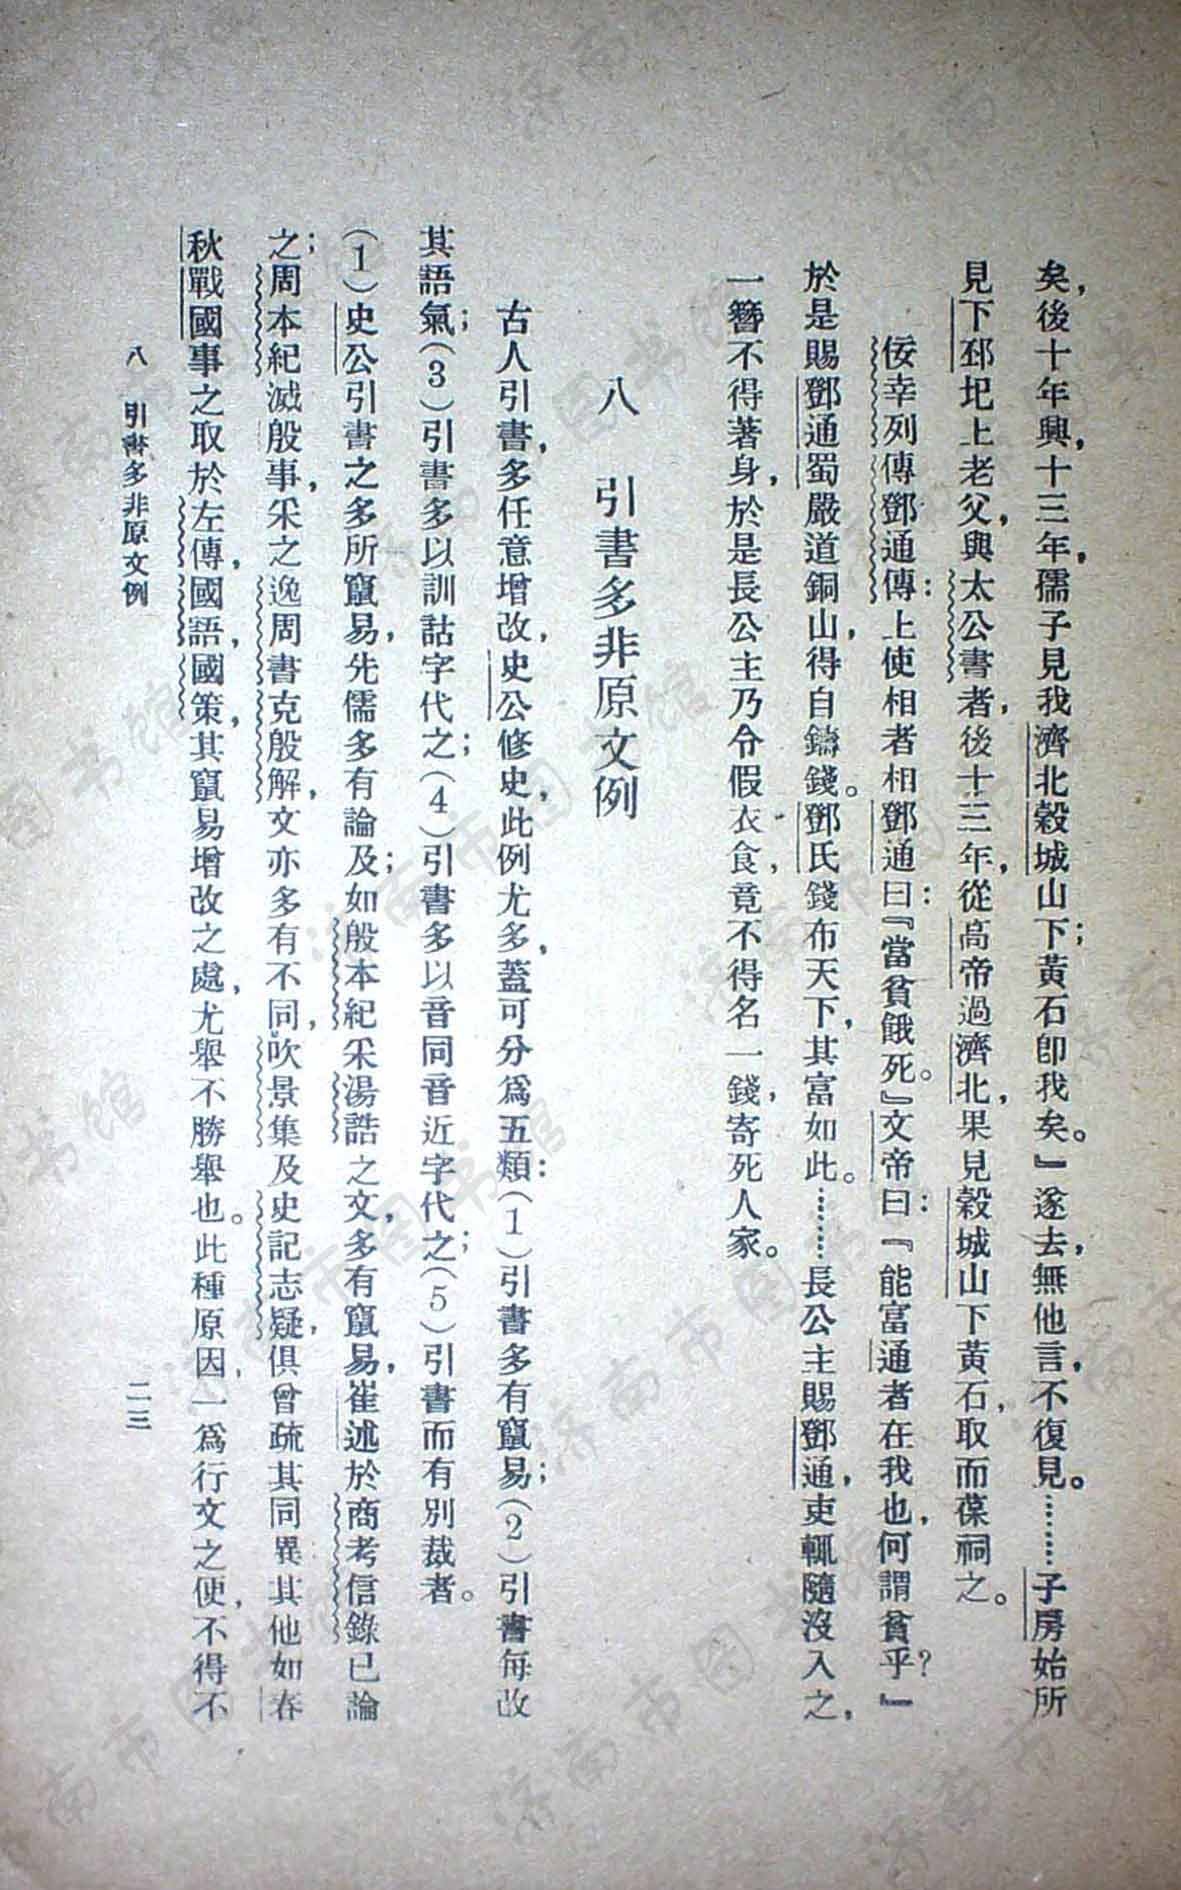 矣，後十年興，十三年，孺子見我濟北穀城山下；黃石卽我矣。』遂去，無他言，不復見。………子房始所
見下邳圯上老父，與太公書者，後十三年，從高帝過濟北，果見穀城山下黃石，取而葆祠之。
佞幸列傳鄧通傳：上使相者相鄧通曰：『當貧餓死。』文帝曰：『能富通者在我也，何謂貧乎？』
於是賜鄧通蜀嚴道銅山，得自鑄錢。鄧氏錢布天下，其富如此。………長公主賜鄧通，吏輒隨沒入之，
一簪不得著身，於是長公主乃令假衣食，竟不得名一錢，寄死人家。
八　引書多非原文例
古人引書，多任意增改，史公修史，此例尤多，蓋可分爲五類：（1）引書多有竄易；（2）引書每改
其語氣；（3）引書多以訓詁字代之；（4）引書多以音同音近字代之；（5）引書而有別裁者。
（1）史公引書之多所竄易，先儒多有論及；如殷本紀采湯誥之文，多有竄易，崔述於商考信錄已論
之；周本紀滅殷事，采之逸周書克殷解，文亦多有不同，吹景集及史記志疑，俱曾疏其同異其他如春
秋戰國事之取於左傳，國語，國策，其竄易增改之處，尤舉不勝舉也。此種原因，一爲行文之便，不得不
八　引書多非原文例
二三
济南市图书馆